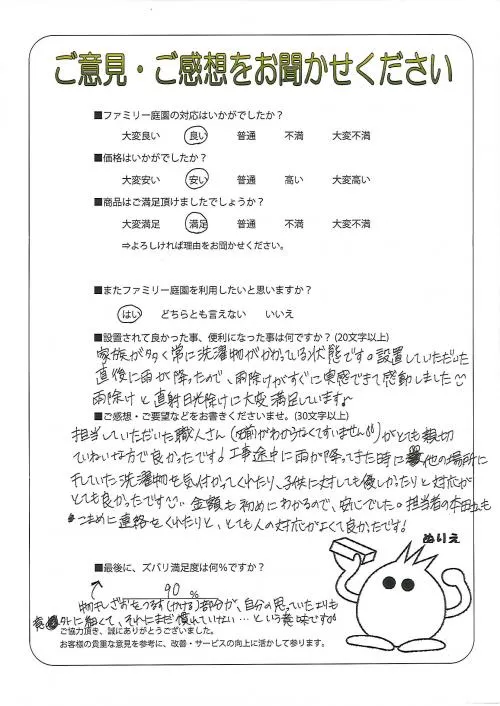 ご意見・ご感想をお聞かせください
■ファミリー庭園の対応はいかがでしたか?
大変良い 良い 普通 不満 大変不満
■価格はいかがでしたか?
大変安い 安い 普通 高い 大変高い
■商品はご満足頂けましたでしょうか?
大変満足 満足 普通 不満 大変不満
⇒よろしければ理由をお聞かせください。
■またファミリー庭園を利用したいと思いますか?
はい どちらとも言えない いいえ
■設置されて良かった事、便利になった事は何ですか?(20文字以上)
家族が多く常に洗濯物がかかっている状態です。設置していただいた
直後に雨が降ったので、雨除けがすぐに実感できて感動しました
雨除けと直射日光除けに大変満足しています。
■ご感想・ご要望などをお書きくださいませ。(30文字以上)
担当していただいた職人さん(名前がわからなくてすいません)がとても親切
ていねいな方で良かったです!工事途中に雨が降ってきた時に 他の場所に
干していた洗濯物を気付かってくれたり、子供に対しても優しかったりと対応が
とても良かったです 金額も初めにわかるので、安心でした。担当者の本田さんも
こまめに連絡をくれたりと、とても人の対応がよくて良かったです!
ぬりえ
■最後に、ズバリ満足度は何%ですか?
90 %
物干しざおをつるす(かける)部分が、自分の思っていたよりも
意外に細くて、それにまだ慣れていない…という意味です
ご協力頂き、誠にありがとうございました。
お客様の貴重な意見を参考に、改善・サービスの向上に活かして参ります。